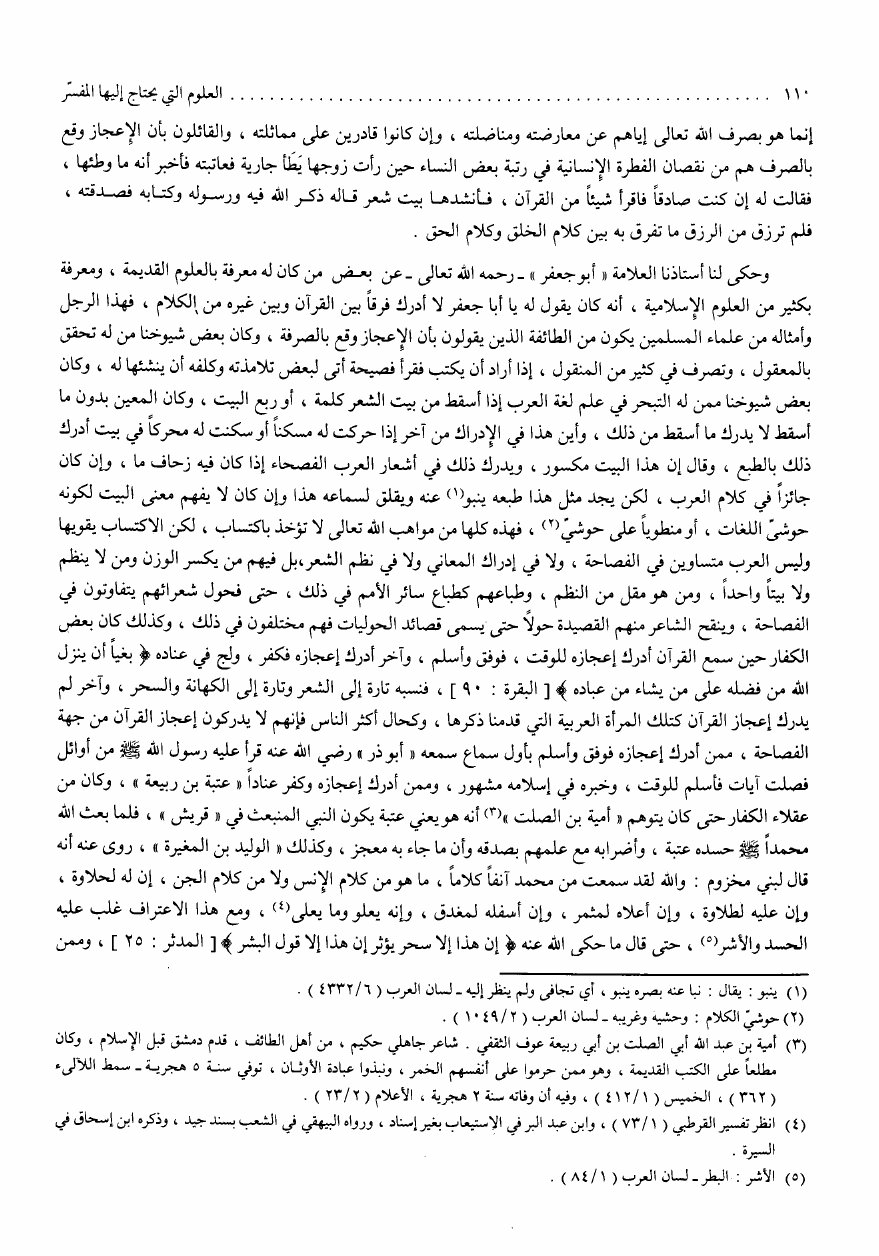 ١١٠ ........................................................ العلوم التي يحتاج إليها المفسّر
إنما هو بصرف الله تعالى إياهم عن معارضته ومناضلته ، وإن كانوا قادرين على مماثلته ، والقائلون بأن الإعجاز وقع
بالصرف هم من نقصان الفطرة الإنسانية في رتبة بعض النساء حين رأت زوجها يَطَأ جارية فعاتبته فأخبر أنه ما وطئها ،
فقالت له إن كنت صادقاً فاقرأ شيئاً من القرآن ، فأنشدها بيت شعر قاله ذكر الله فيه ورسوله وكتابه فصدقته ،
فلم ترزق من الرزق ما تفرق به بين كلام الخلق وكلام الحق .
وحكى لنا أستاذنا العلامة « أبو جعفر » ـ رحمه الله تعالى ـ عن بعض من كان له معرفة بالعلوم القديمة ، ومعرفة
بكثير من العلوم الإسلامية ، أنه كان يقول له يا أبا جعفر لا أدرك فرقاً بين القرآن وبين غيره من الكلام ، فهذا الرجل
وأمثاله من علماء المسلمين يكون من الطائفة الذين يقولون بأن الإعجاز وقع بالصرفة ، وكان بعض شيوخنا من له تحقق
بالمعقول ، وتصرف في كثير من المنقول ، إذا أراد أن يكتب فقرأ فصيحة أتى لبعض تلامذته وكلفه أن ينشئها له ، وكان
بعض شيوخنا ممن له التبحر في علم لغة العرب إذا أسقط من بيت الشعر كلمة ، أو ربع البيت ، وكان المعين بدون ما
أسقط لا يدرك ما أسقط من ذلك ، وأين هذا في الإدراك من آخر إذا حركت له مسكناً أو سكنت له محركاً في بيت أدرك
ذلك بالطبع ، وقال إن هذا البيت مكسور ، ويدرك ذلك في أشعار العرب الفصحاء إذا كان فيه زحاف ما ، وإن كان
جائزاً في كلام العرب ، لكن يجد مثل هذا طبعه ينبو(١) عنه ويقلق لسماعه هذا وإن كان لا يفهم معنى البيت لكونه
حوشيّ اللغات ، أو منطوياً على حوشيّ(٢) ، فهذه كلها من مواهب الله تعالى لا تؤخذ باكتساب ، لكن الاكتساب يقويها
وليس العرب متساوين في الفصاحة ، ولا في إدراك المعاني ولا في نظم الشعر ،بل فيهم من يكسر الوزن ومن لا ينظم
ولا بيتاً واحداً ، ومن هو مقل من النظم ، وطباعهم كطباع سائر الأمم في ذلك ، حتى فحول شعرائهم يتفاوتون في
الفصاحة ، وينقح الشاعر منهم القصيدة حولاً حتى يسمى قصائد الحوليات فهم مختلفون في ذلك ، وكذلك كان بعض
الكفار حين سمع القرآن أدرك إعجازه للوقت ، فوفق وأسلم ، وآخر أدرك إعجازه فكفر ، ولج في عناده ﴿ بغياً أن ينزل
الله من فضله على من يشاء من عباده ﴾ [ البقرة : ٩٠ ] ، فنسبه تارة إلى الشعر وتارة إلى الكهانة والسحر ، وآخر لم
يدرك إعجاز القرآن كتلك المرأة العربية التي قدمنا ذكرها ، وكحال أكثر الناس فإنهم لا يدركون إعجاز القرآن من جهة
الفصاحة ، ممن أدرك إعجازه فوفق وأسلم بأول سماع سمعه « أبو ذر » رضي الله عنه قرأ عليه رسول الله ﷺ من أوائل
فصلت آيات فأسلم للوقت ، وخبره في إسلامه مشهور ، وممن أدرك إعجازه وكفر عناداً « عتبة بن ربيعة » ، وكان من
عقلاء الكفار حتى كان يتوهم « أمية بن الصلت »(٣) أنه هو يعني عتبة يكون النبي المنبعث في « قريش » ، فلما بعث الله
محمداً ﷺ حسده عتبة ، وأضرابه مع علمهم بصدقه وأن ما جاء به معجز ، وكذلك « الوليد بن المغيرة » ، روى عنه أنه
قال لبني مخزوم : والله لقد سمعت من محمد آنفاً كلاماً ، ما هو من كلام الإنس ولا من كلام الجن ، إن له لحلاوة ،
وإن عليه لطلاوة ، وإن أعلاه لمثمر ، وإن أسفله لمغدق ، وإنه يعلو وما يعلى(٤) ، ومع هذا الاعتراف غلب عليه
الحسد والأشر(٥) ، حتى قال ما حكى الله عنه ﴿ إن هذا إلا سحر يؤثر إن هذا إلا قول البشر ﴾ [ المدثر : ٢٥ ] ، وممن
(١) ينبو : يقال : نبا عنه بصره ينبو ، أي تجافى ولم ينظر إليه ـ لسان العرب ( ٤٣٣٢/٦ ) .
(٢) حوشيّ الكلام : وحشيه وغريبه ـ لسان العرب ( ١٠٤٩/٢ ) .
(٣) أمية بن عبد الله أبي الصلت بن أبي ربيعة عوف الثقفي . شاعر جاهلي حكيم ، من أهل الطائف ، قدم دمشق قبل الإسلام ، وكان
مطلعاً على الكتب القديمة ، وهو ممن حرموا على أنفسهم الخمر ، ونبذوا عبادة الأوثان ، توفي سنة ٥ هجرية ـ سمط اللآلىء
( ٣٦٢ ) ، الخميس ( ٤١٢/١ ) ، وفيه أن وفاته سنة ٢ هجرية ، الأعلام ( ٢٣/٢ ) .
(٤) انظر تفسير القرطبي ( ٧٣/١ ) ، وابن عبد البر في الاستيعاب بغير إسناد ، ورواه البيهقي في الشعب بسند جيد ، وذكره ابن إسحاق في
السيرة .
(٥) الأشر : البطر ـ لسان العرب ( ٨٤/١ ) .